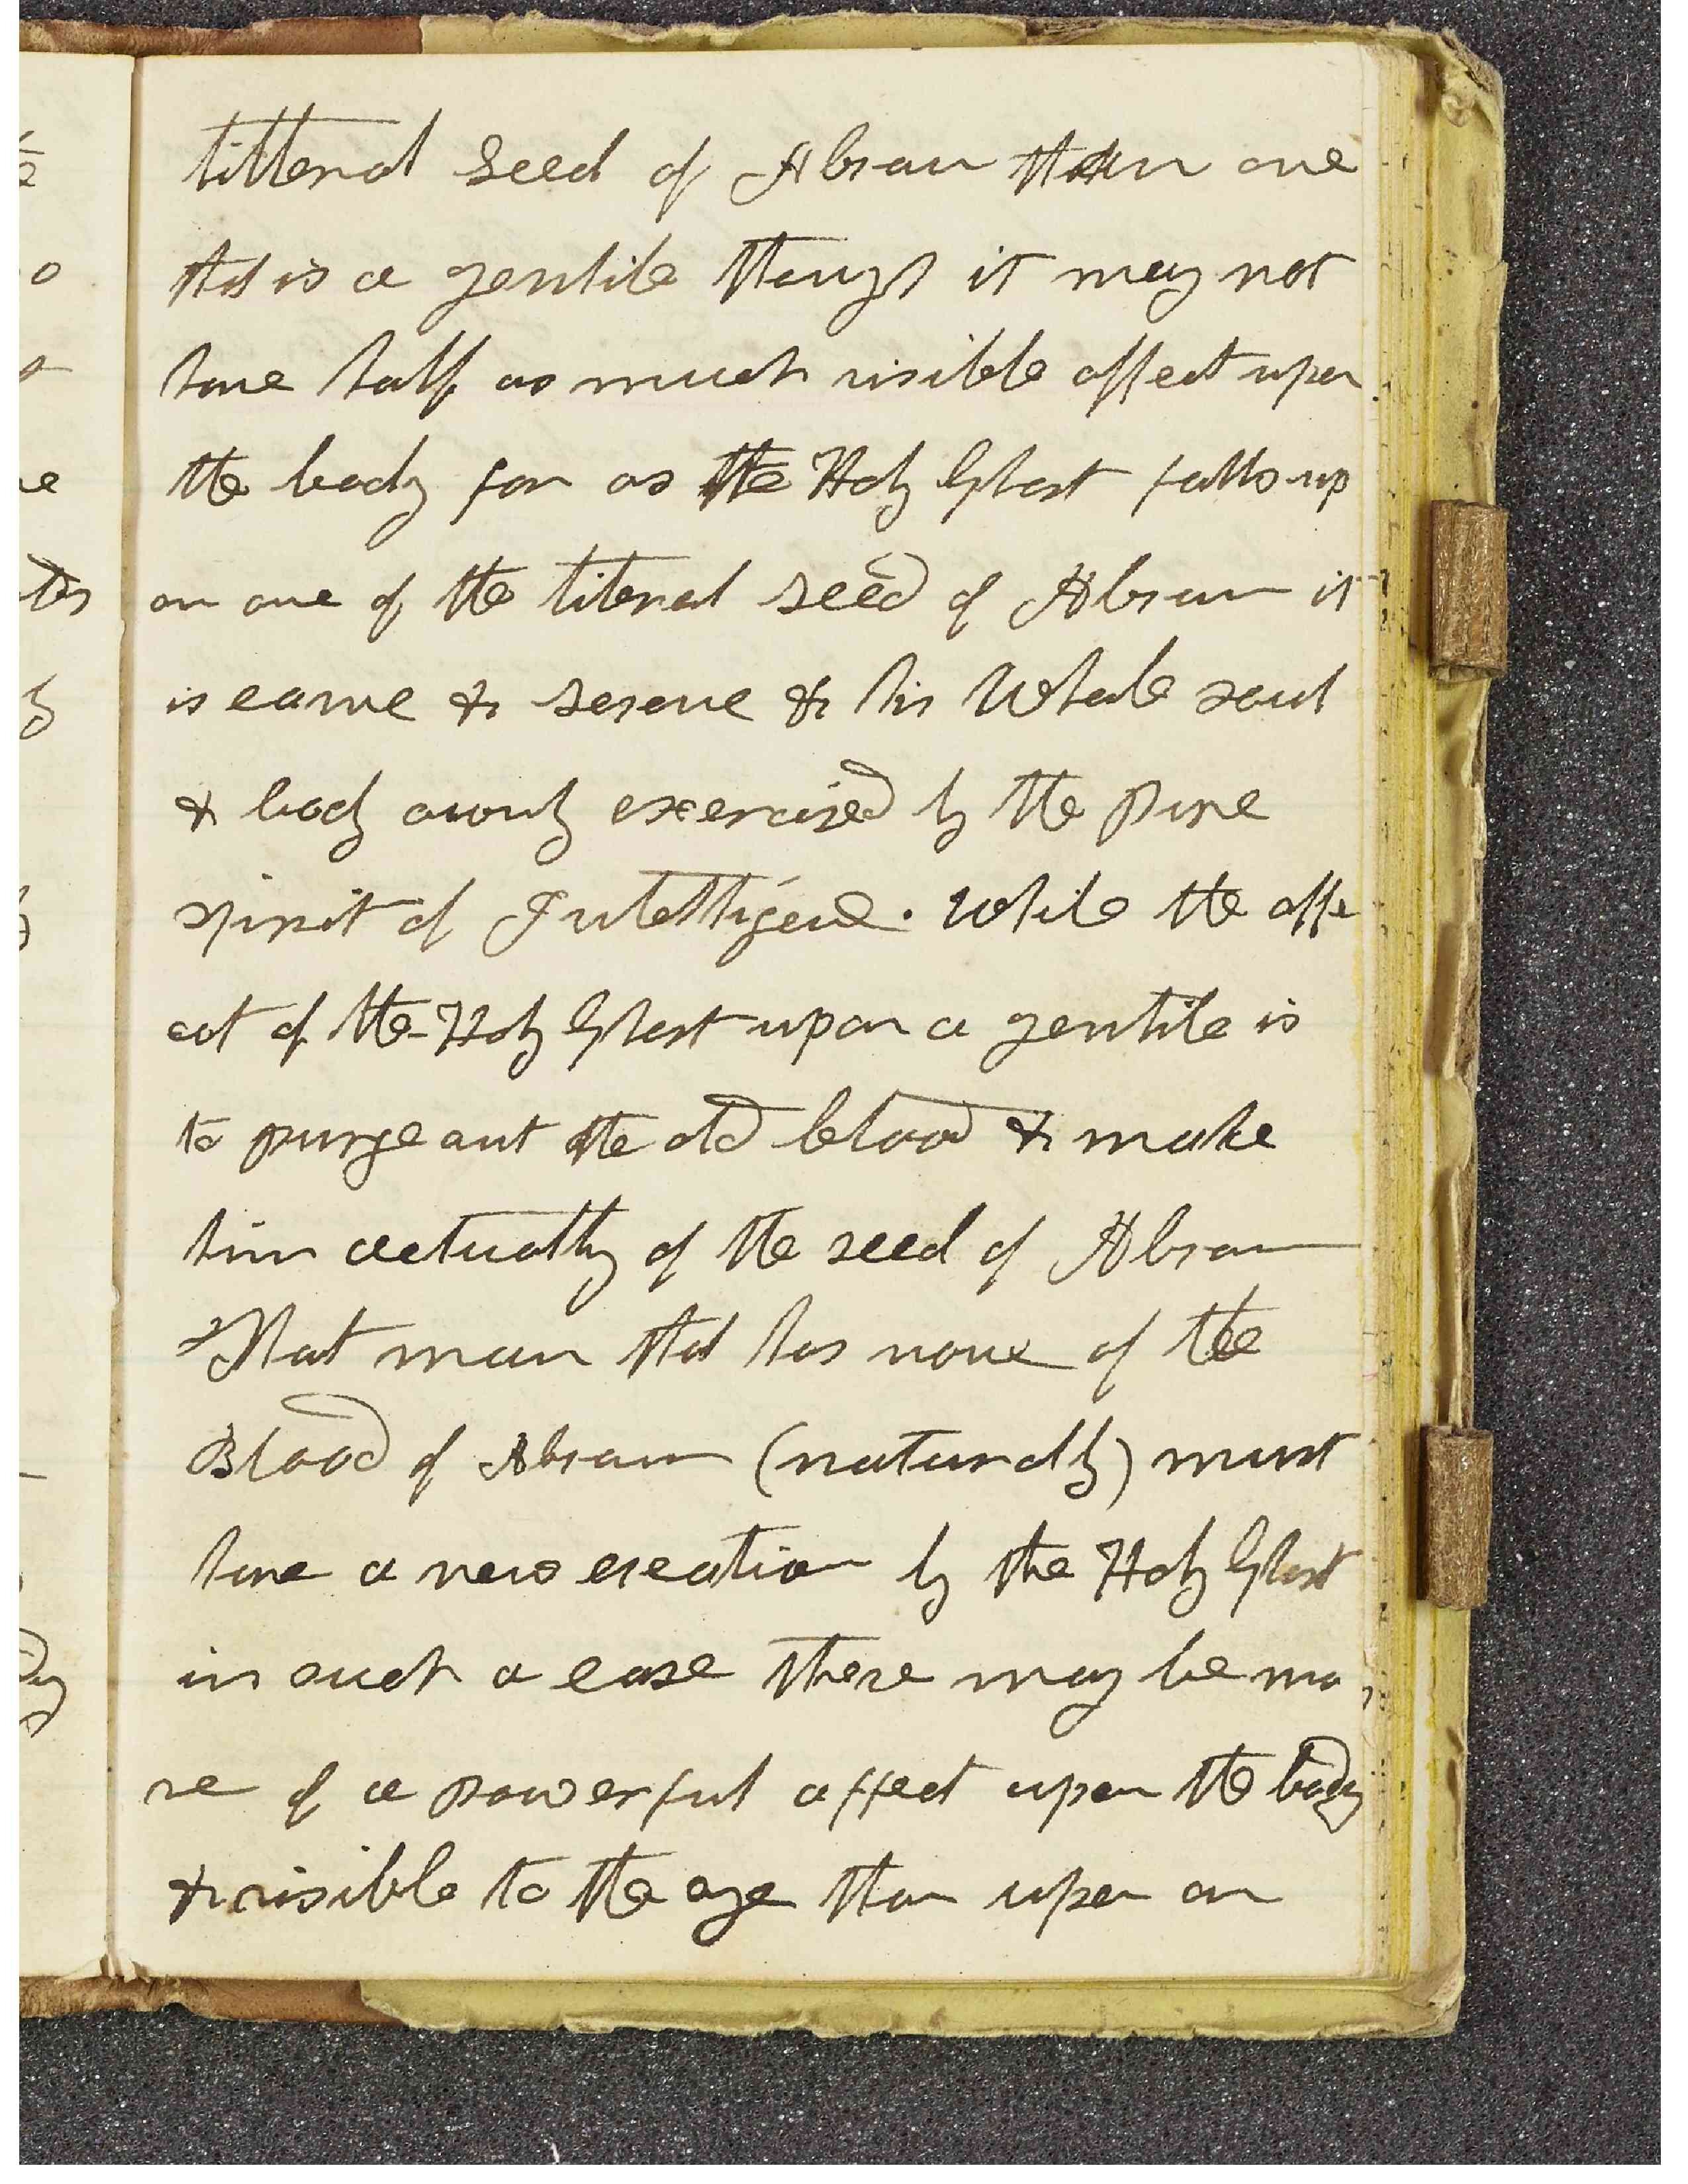 litteral seed of Abram than one
that is a gentile though it may not
have half as much visible affect upon
the body for as the Holy Ghost falls up
on one of the literal seed of Abram it
is came & serene & his Whole soul
& body awonly exercised by the pure
spirit of Intelligence. while the affe
ect of the Holy Ghost upon a gentile is
to purge out the old blood & make
him actually of the seed of Abram
That man that has none of the
Blood of Abram (naturally) must
have a new creation by the Holy Ghost
in such a case there may be mo
re of a powerful affect upon the body
& visible to the eye than upon an